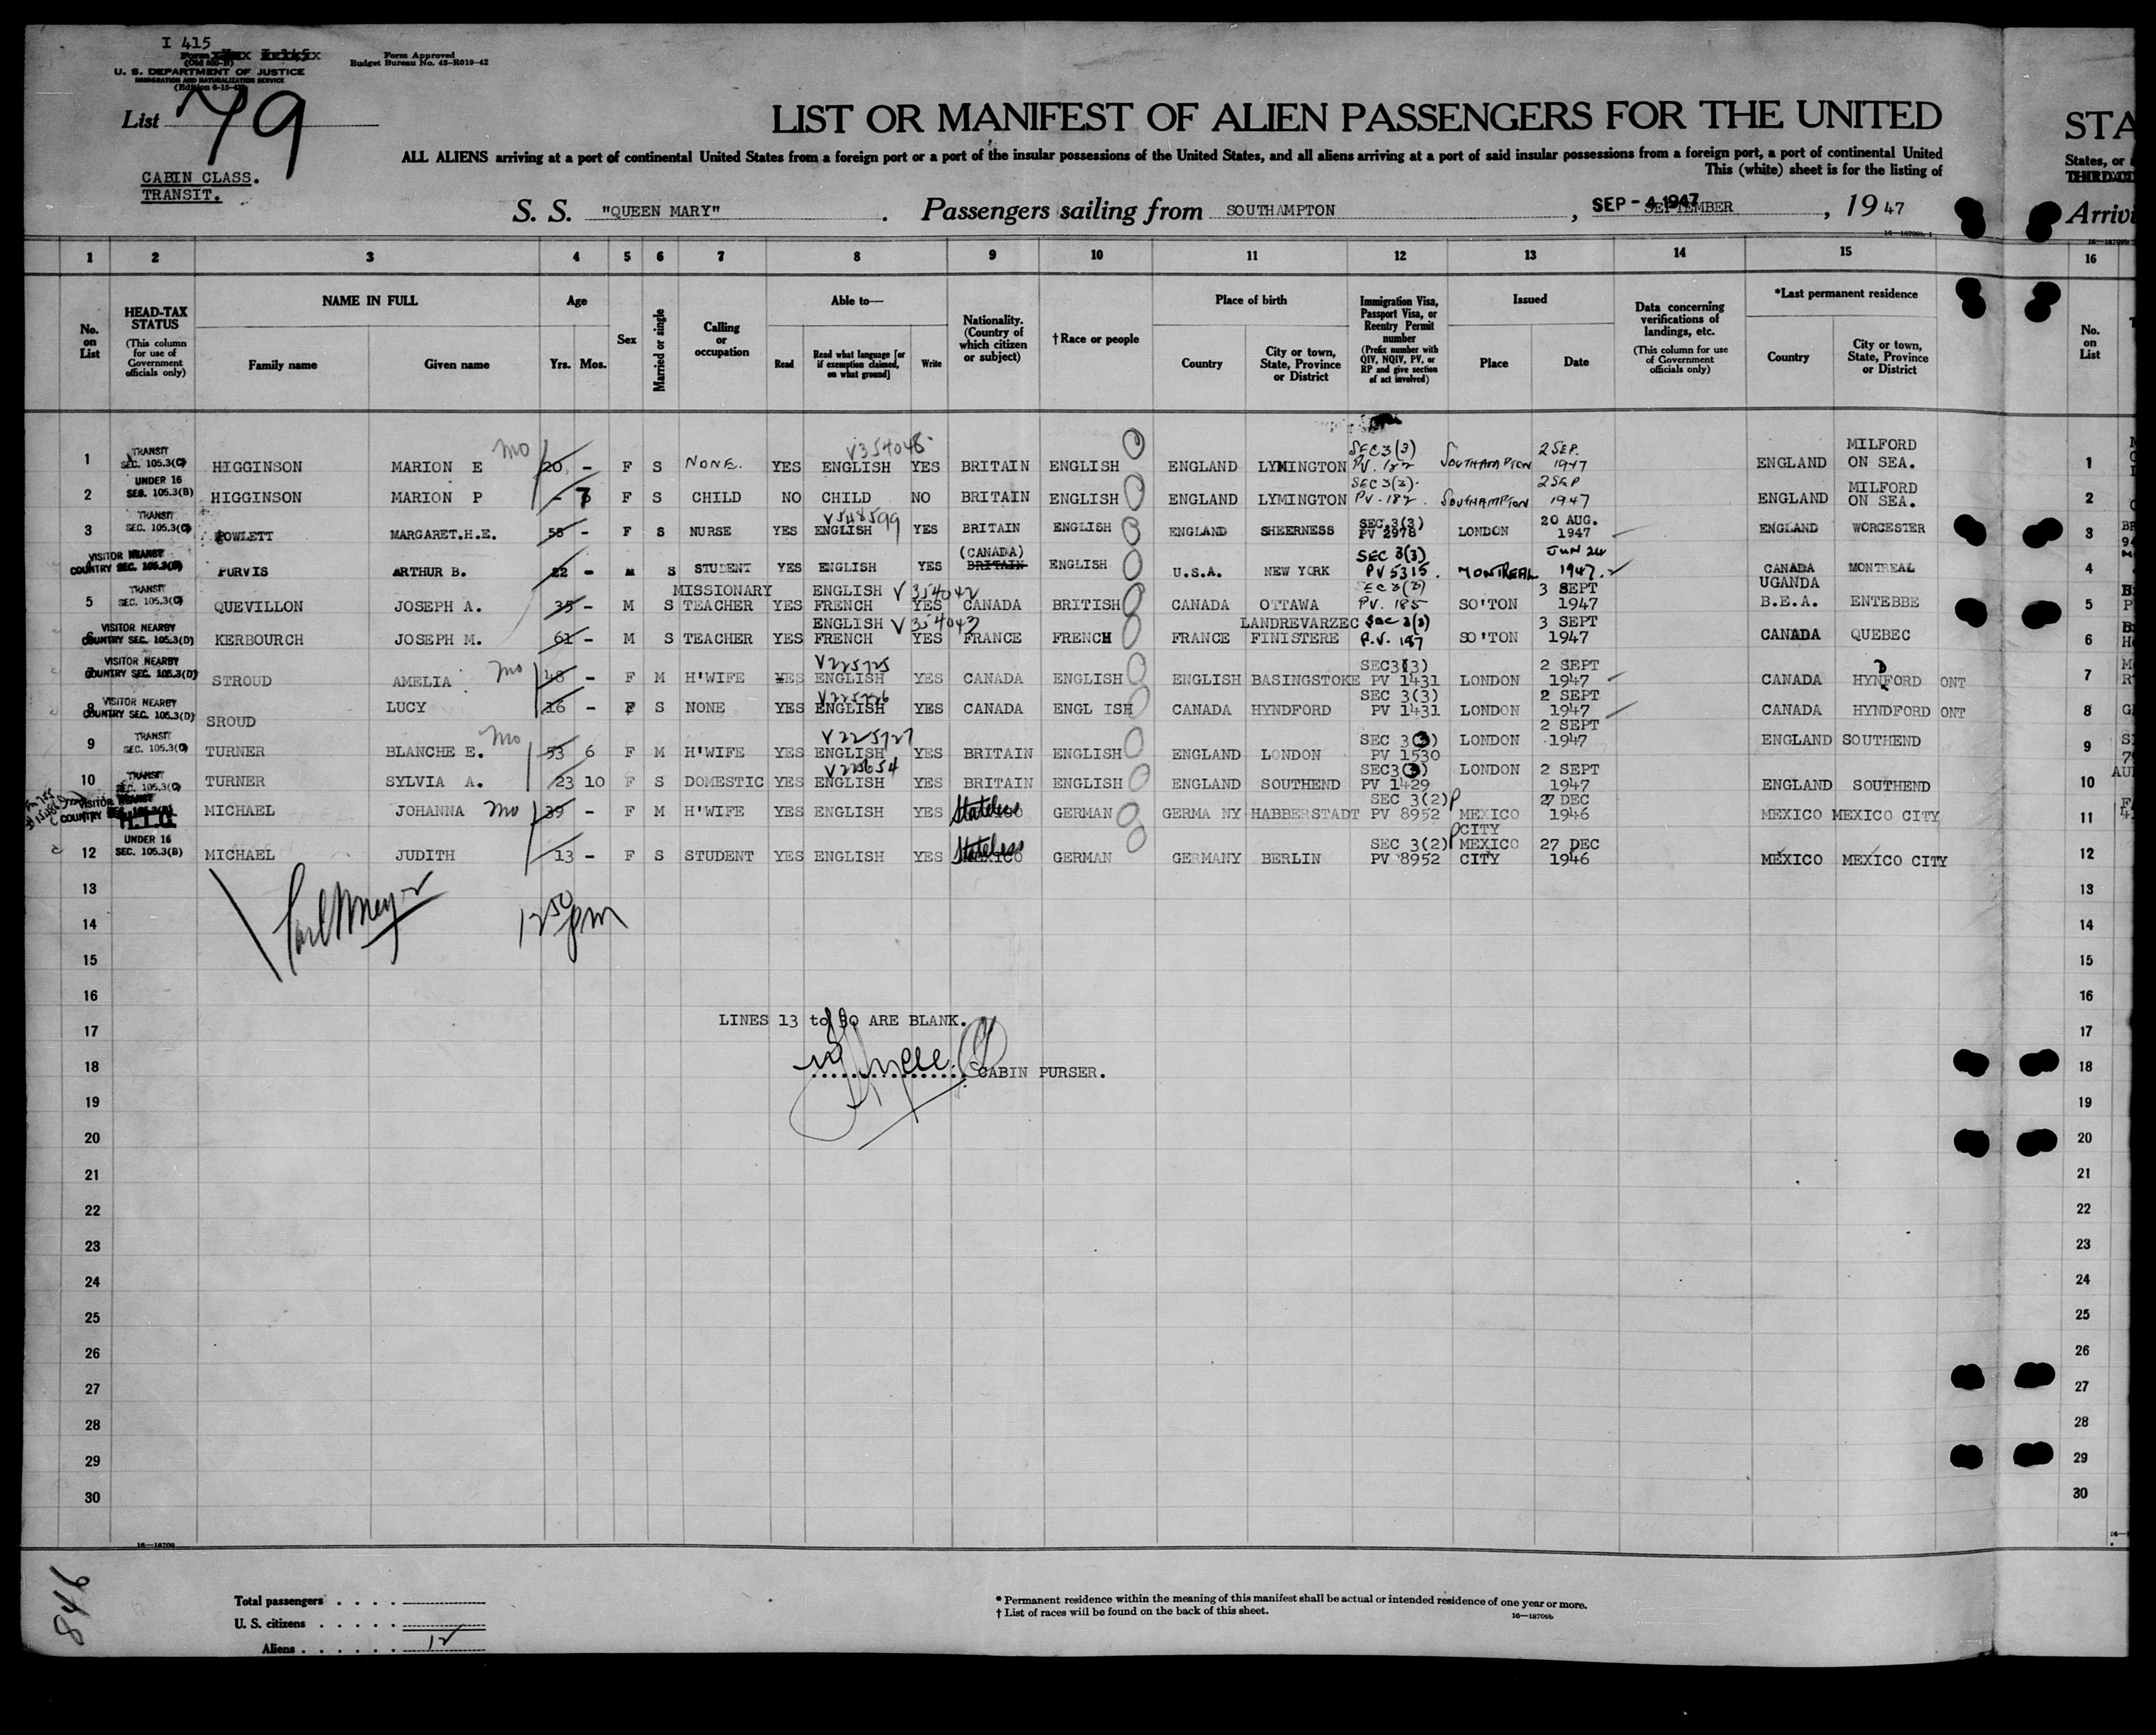 I 415
Form Approved
Budget Bureau No. 43-R019-42
U. S. DEPARTMENT OF JUSTICE
IMMIGRATION AND NATURALIZATION SERVICE
List 79
CABIN CLASS.
TRANSIT.
LIST OR MANIFEST OF ALIEN PASSENGERS FOR THE UNITED
STA
ALL ALIENS arriving at a port of continental United States from a foreign port or a port of the insular possessions of the United States, and all aliens arriving at a port of said insular possessions from a foreign port, a port of continental United
States, or
This (white) sheet is for the listing of
S. S. "QUEEN MARY" . Passengers sailing from SOUTHAMPTON , SEP - 4 1947 SEPTEMBER , 19 47
Arrivi
1 2 3 4 5 6 7 8 9 10 11 12 13 14 15 16
No. on List
HEAD-TAX STATUS (This column for use of Government officials only)
NAME IN FULL Family name Given name
Age Yrs. Mos.
Sex
Married or single
Calling or occupation
Able to— Read Read what language [or if exemption claimed, on what ground] Write
Nationality. (Country of which citizen or subject)
†Race or people
Place of birth Country City or town, State, Province or District
Immigration Visa, Passport Visa, or Reentry Permit number (Prefix number with QIV, NQIV, PV, or RP and give section of act involved)
Issued Place Date
Data concerning verifications of landings, etc. (This column for use of Government officials only)
*Last permanent residence Country City or town, State, Province or District
No. on List
1 TRANSIT SEC. 105.3(C) HIGGINSON MARION E mo 20 - F S NONE. YES ENGLISH V354048 YES BRITAIN ENGLISH ENGLAND LYMINGTON SEC 3(3) PV. 182 SOUTHAMPTON 2 SEP. 1947 ENGLAND MILFORD ON SEA. 1
2 UNDER 16 SEC. 105.3(B) HIGGINSON MARION P - 7 F S CHILD NO CHILD NO BRITAIN ENGLISH ENGLAND LYMINGTON SEC 3(3). PV-182. SOUTHAMPTON 2 SEP 1947 ENGLAND MILFORD ON SEA. 2
3 TRANSIT SEC. 105.3(C) MARGARET.H.E. 55 - F S NURSE YES V548599 ENGLISH YES BRITAIN ENGLISH ENGLAND SHEERNESS SEC.3(3) PV 2978 LONDON 20 AUG. 1947 ENGLAND WORCESTER 3
VISITOR COUNTRY SEC. 105.3(D) PURVIS ARTHUR B. 22 - M S STUDENT YES ENGLISH YES (CANADA) BRITAIN ENGLISH U.S.A. NEW YORK SEC 3(3) PV 5315. MONTREAL JUN 24 1947. CANADA MONTREAL 4
5 TRANSIT SEC. 105.3(C) QUEVILLON JOSEPH A. 35 - M S MISSIONARY TEACHER YES ENGLISH FRENCH V354042 YES CANADA BRITISH CANADA OTTAWA SEC 3(3) PV. 185 SO'TON 3 SEPT 1947 UGANDA B.E.A. ENTEBBE 5
6 VISITOR NEARBY COUNTRY SEC. 105.3(D) KERBOURCH JOSEPH M. 61 - M S TEACHER YES ENGLISH FRENCH V354043 YES FRANCE FRENCH FRANCE LANDREVARZEC FINISTERE Sec 3(3) P.V. 187 SO'TON 3 SEPT 1947 CANADA QUEBEC 6
7 VISITOR NEARBY COUNTRY SEC. 105.3(D) STROUD AMELIA mo 48 - F M H'WIFE YES V225725 ENGLISH YES CANADA ENGLISH ENGLISH BASINGSTOKE SEC3(3) PV 1431 LONDON 2 SEPT 1947 CANADA HYNFORD D ONT 7
8 VISITOR NEARBY COUNTRY SEC. 105.3(D) SROUD LUCY 16 - F S NONE YES V225726 ENGLISH YES CANADA ENGL ISH CANADA HYNDFORD SEC 3(3) PV 1431 LONDON 2 SEPT 1947 CANADA HYNDFORD ONT 8
9 TRANSIT SEC. 105.3(C) TURNER BLANCHE E. mo 53 6 F M H'WIFE YES V225727 ENGLISH YES BRITAIN ENGLISH ENGLAND LONDON SEC 3(3) PV 1530 LONDON 2 SEPT 1947 ENGLAND SOUTHEND 9
10 TRANSIT SEC. 105.3(C) TURNER SYLVIA A. 23 10 F S DOMESTIC YES ENGLISH YES BRITAIN ENGLISH ENGLAND SOUTHEND SEC3(3) PV 1429 LONDON 2 SEPT 1947 ENGLAND SOUTHEND 10
VISITOR COUNTRY MICHAEL JOHANNA mo 39 - F M H'WIFE YES ENGLISH YES Stateless GERMAN GERMA NY HABBERSTADT SEC 3(2) P PV 8952 MEXICO CITY 27 DEC 1946 MEXICO MEXICO CITY 11
12 UNDER 16 SEC. 105.3(B) MICHAEL JUDITH 13 - F S STUDENT YES ENGLISH YES Stateless MEXICO GERMAN GERMANY BERLIN SEC 3(2) P PV 8952 MEXICO CITY 27 DEC 1946 MEXICO MEXICO CITY 12
13 13
14 12 50 pm 14
15 15
16 16
17 LINES 13 to 30 ARE BLANK. 17
18 CABIN PURSER. 18
19 19
20 20
21 21
22 22
23 23
24 24
25 25
26 26
27 27
28 28
29 29
30 30
16—18709
846
Total passengers
U. S. citizens
Aliens 12
* Permanent residence within the meaning of this manifest shall be actual or intended residence of one year or more.
† List of races will be found on the back of this sheet.
16—18706b